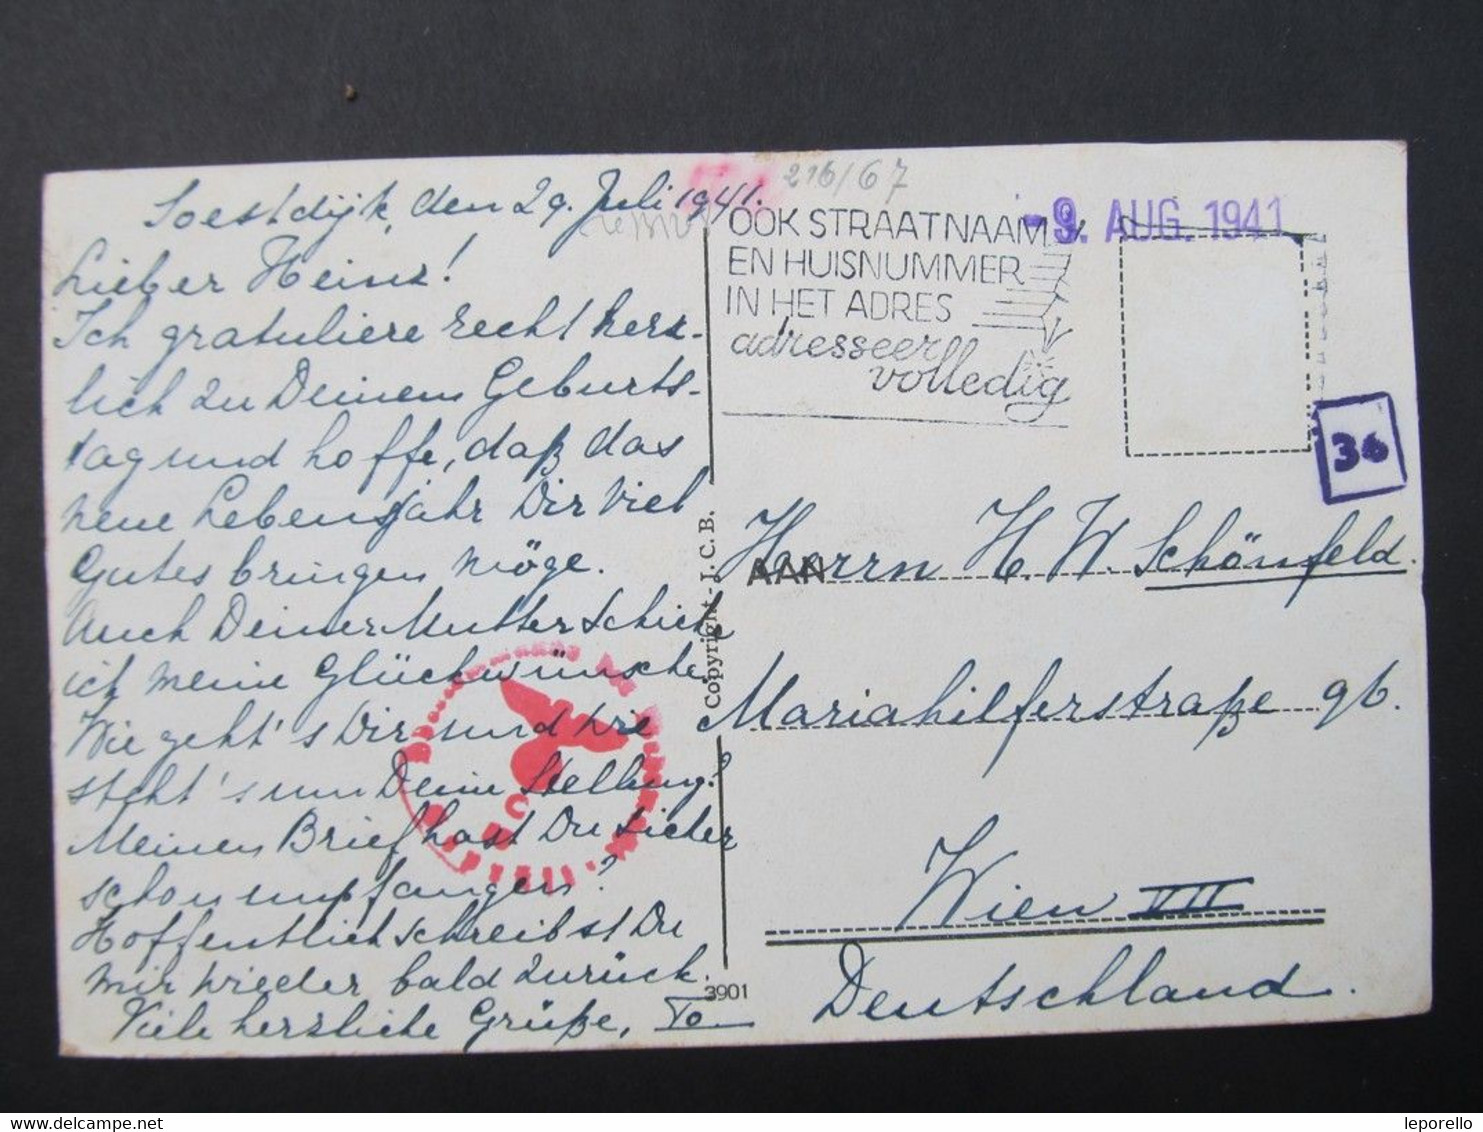 Soestdijk, den 29. Juli 1941.
Lieber Heinz!
Ich gratuliere recht herz-
lich zu Deinem Geburts-
tag und hoffe, daß das
neue Lebensjahr Dir viel
Gutes bringen möge.
Auch Deiner Mutter schicke
ich meine Glückwünsche
Wie geht's Dir und wie
steht's um Deine Stellung?
Meinen Brief hast Du sicher
schon empfangen?
Hoffentlich schreibst Du
mir wieder bald zurück.
Viele herzliche Grüße,
216/67
OOK STRAATNAAM
EN HUISNUMMER
IN HET ADRES
adresseer
volledig
-9. AUG. 1941
36
Copyright - J. C. B.
3901
AAN
Herrn H. W. Schönfeld.
Mariahilferstraße 96.
Wien VII
Deutschland.
leporello